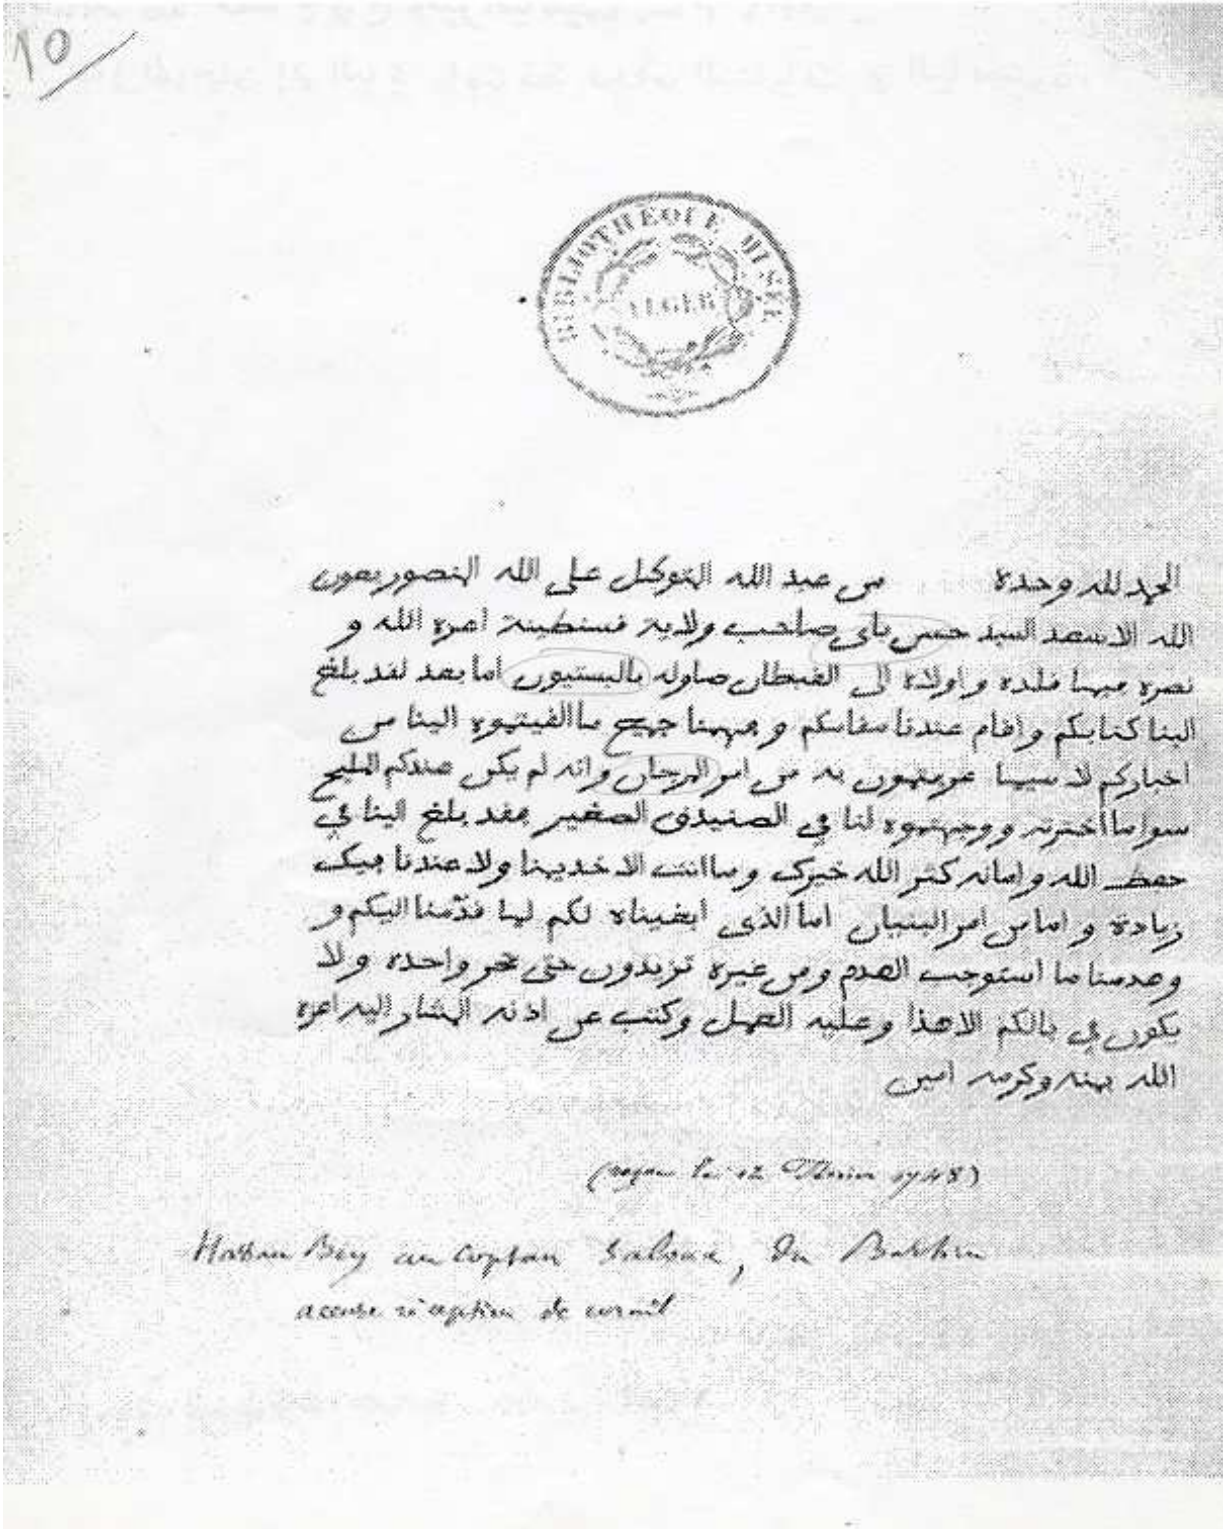 10
BIBLIOTHÈQUE MUSÉE
ALGER
الحمد لله وحده من عبد الله المتوكل على الله المنصور بعون
الله الاسعد السيد حسن باي صاحب ولاية قسنطينة اعزه الله و
نصره فيما قلده واولاه الى القبطان صاوله بالبستيون اما بعد لقد بلغ
الينا كتابكم واقام عندنا مقامكم وفهمنا جميع ما الفيتموه الينا من
اخباركم لا سيما عرفتمون به من امر المرجان وانه لم يكن عندكم المليح
سوا ما اخترته ووجهتموه لنا في الصنيدق الصغير فقد بلغ الينا في
حفظ الله وامانه كثر الله خيرك وما انت الا خديمنا ولا عندنا فيك
زيادة واما من امر البنيان اما الذي ابقيناه لكم لما قدّمنا اليكم و
وهدمنا ما استوجب الهدم ومن غيره تزيدون حتى حجر واحده ولا
يكون في بالكم الا هذا وعليه العمل وكتب عن اذنه المشار اليه اعزه
الله بمنه وكرمه امين
(reçue le 12 Février 1748)
Hassan Bey au Captan, du Bastion
accuse réception de corail